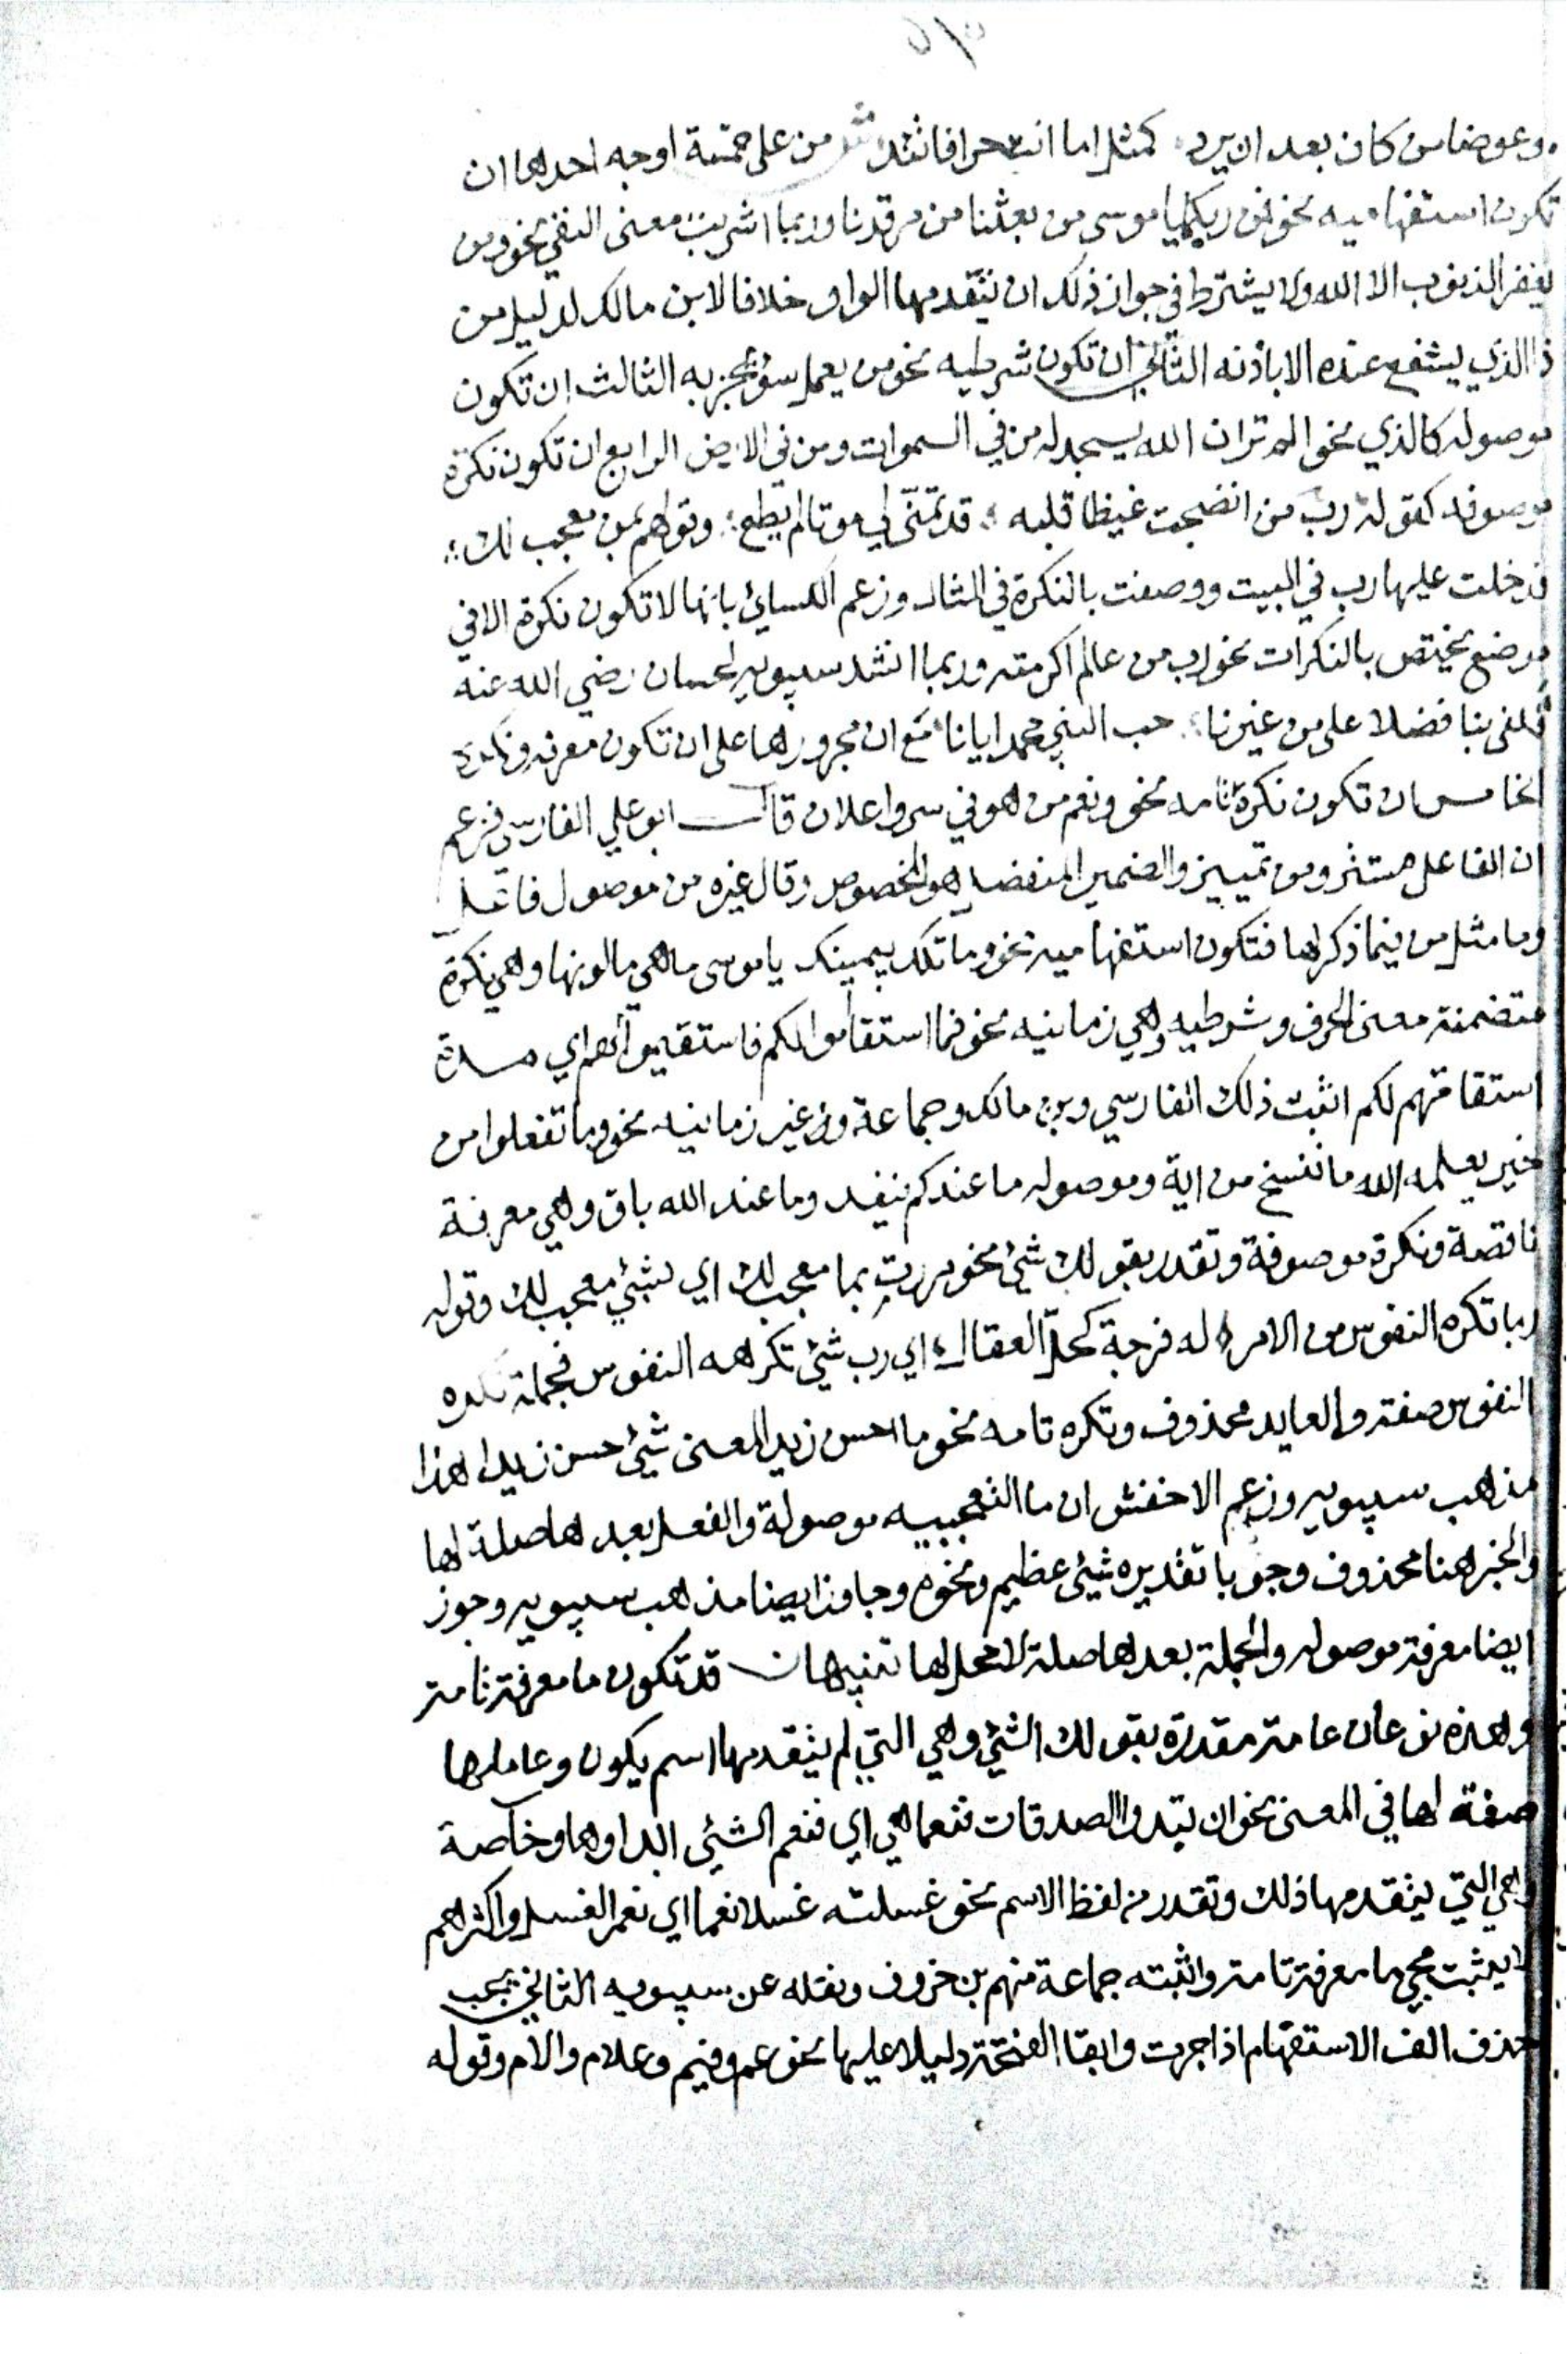 وعوضا من كان بعد ان يرد كمثل اما انت حرا فانئد من على خمسة اوجه احدها ان
تكون استفهاميه نحو فمن ربكما يا موسى من بعثنا من مرقدنا وربما اشربت معنى النفي نحو ومن
يغفر الذنوب الا الله ولا يشترط في جواز ذلك ان يتقدمها الواو خلافا لابن مالك لدليل من
ذا الذي يشفع عنده الا باذنه الثاني ان تكون شرطيه نحو من يعمل سؤ يجز به الثالث ان تكون
موصوله كالذي نحو الم تر ان الله يسجد له من في السموات ومن في الارض الرابع ان تكون نكرة
موصوفه كقوله رب من انضجت غيظا قلبه قد تمنّى لي موتا لم يطع وقولهم بمن معجب لك
فدخلت عليها رب في البيت ووصفت بالنكرة في المثال وزعم الكسائي بانها لا تكون نكرة الا في
موضع يختص بالنكرات نحو رب من عالم اكرمته وربما انشد سيبويه لحسان رضي الله عنه
فكفى بنا فضلا على من غيرنا حب النبي محمد ايانا مع ان مجرورها على ان تكون معرفه ونكرة
الخامس ان تكون نكرة تامه نحو ونعم من هو في سر واعلان قال ابو علي الفارسي فزعم
ان الفاعل مستتر ومن تمييز والضمير المنفصل هو المخصوص وقال غيره من موصول فاعل
وما مثل من فيما ذكرها فتكون استفهاميه نحو وما تلك بيمينك يا موسى ما هي ما لونها وهي نكرة
متضمنة معنى الحرف وشرطيه وهي زمانيه نحو فما استقاموا لكم فاستقيموا لهم اي مدة
استقامتهم لكم اثبت ذلك الفارسي وبن مالك وجماعة وغير زمانيه نحو وما تفعلوا من
خير يعلمه الله ما ننسخ من اية وموصوله ما عندكم ينفد وما عند الله باق وهي معرفة
ناقصة ونكرة موصوفة وتقدر بقولك شئ نحو مررت بما معجب لك اي بشئ معجب لك وقوله
ربما تكره النفوس من الامر له فرجة كحل العقال اي رب شئ تكرهه النفوس فجملة تكره
النفوس صفته والعايد محذوف ونكره تامه نحو ما احسن زيد المعنى شئ حسن زيدا هذا
مذهب سيبويه وزعم الاخفش ان ما التعجبيه موصولة والفعل بعدها صلة لها
والخبر هنا محذوف وجوبا تقديره شئ عظيم ونحوه وجا هذا ايضا مذهب سيبويه وجوز
ايضا معرفة موصوله والجملة بعدها صلة لا محل لها تنبيهان قد تكون ما معرفة تامة
وهذه نوعان عامة مقدرة بقولك الشئ وهي التي لم يتقدمها اسم يكون وعاملها
صفة لها في المعنى نحو ان تبدوا الصدقات فنعما هي اي فنعم الشئ ابداوها وخاصة
وهي التي يتقدمها ذلك وتقدر من لفظ الاسم نحو غسلته غسلا نعما اي نعم الغسل واكثرهم
لا يثبت مجي ما معرفة تامة واثبته جماعة منهم بن خروف ونقله عن سيبويه الثاني يجب
حذف الف الاستفهام اذا جرت وابقا الفتحة دليلا عليها نحو عم وفيم وعلام والام وقوله